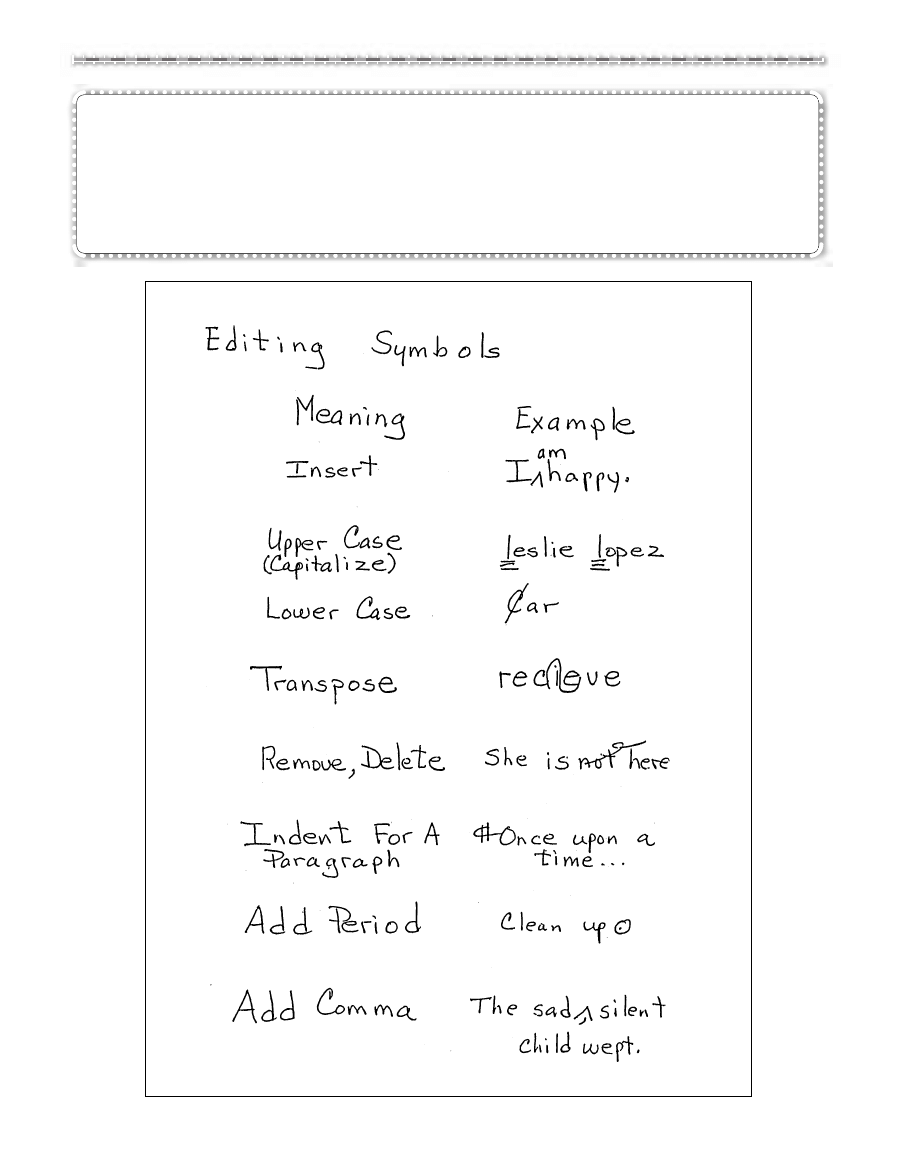 Editing Symbols
Meaning Example
am
Insert I^happy.
Upper Case leslie lopez
(Capitalize)
Lower Case Car
Transpose recieve
Remove, Delete She is not here
Indent For A ¶Once upon a
Paragraph time...
Add Period Clean up⊙
Add Comma The sad^silent
child wept.